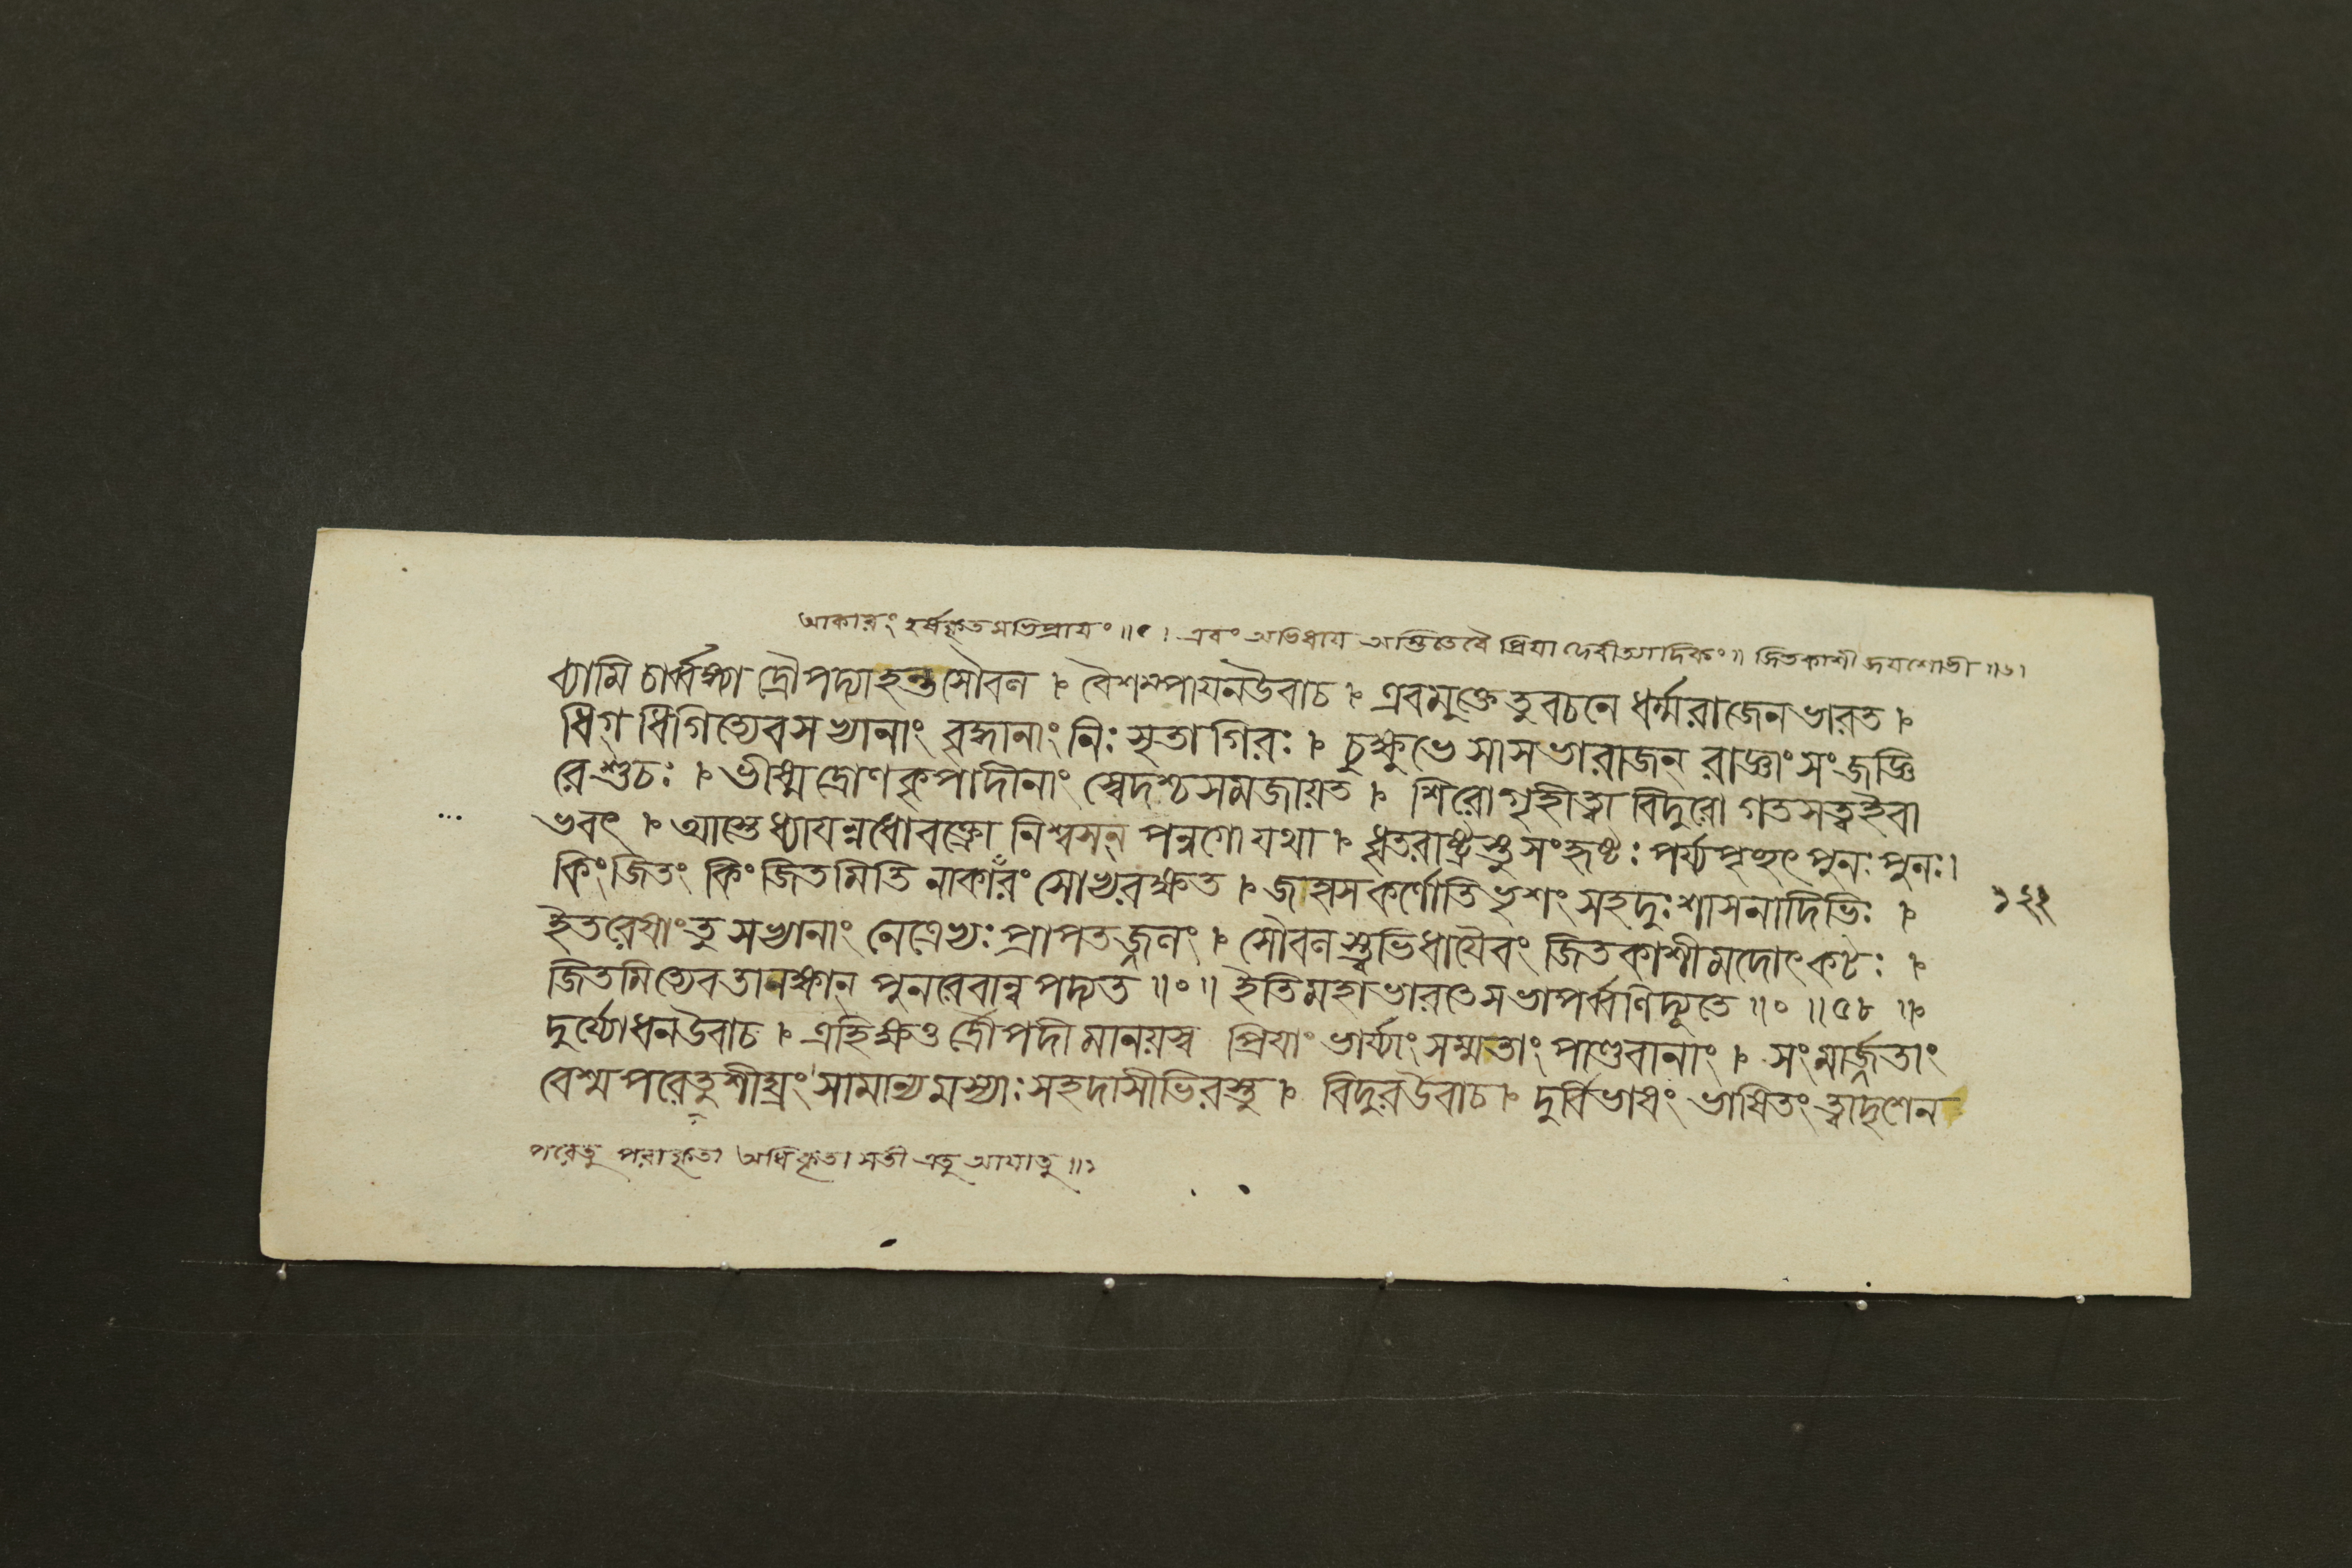 আকারং হর্ষকৃতমভিপ্রাযং ॥৫। এবং অভিধায অস্তিতেবৈ প্রিযা দেবীত্যাদিকং॥ জিতকাশী জযশোভী ॥৬।
ব্যামি চার্ব্বঙ্গ্যা দ্রৌপদ্যা হন্তসৌবল । বৈশম্পাযনউবাচ । এবমুক্তেতুবচনে ধর্ম্মরাজেনভারত ।
ধিগ্ ধিগিত্যেবসভ্যানাং বৃদ্ধানাং নিঃসৃতাগিরঃ । চুক্ষুভে সাসভারাজন্ রাজ্ঞাং সংজজ্ঞি
রেশুচঃ । ভীষ্মদ্রোণকৃপাদীনাং স্বেদশ্চসমজায়ত । শিরোগৃহীত্বা বিদুরো গতসত্ত্বইবা
ভবৎ । আস্তেধ্যাযন্নধোবক্ত্রো নিশ্বসন্ পন্নগোযথা । ধৃতরাষ্ট্রস্তুসংহৃষ্টঃ পর্য্যপৃচ্ছৎ পুনঃ পুনঃ।
কিংজিতং কিংজিতমিতি নাকারং সোভ্যরক্ষত । জাহাসকর্ণোতিভৃশং সহদুঃশাসনাদিভিঃ ।
ইতরেষাংতু সভ্যানাং নেত্রেভ্যঃ প্রাপতজ্জলং । সৌবলস্ত্বভিধাযৈবং জিতকাশীমদোৎকটঃ ।
জিতমিত্যেবতানক্ষান্ পুনরেবান্বপদ্যত ॥০॥ ইতিমহাভারতেসভাপর্ব্বণিদ্যূতে ॥০॥৫৮॥
দুর্য্যোধনউবাচ । এহিক্ষত্ত দ্রৌপদীমানয়স্ব প্রিযাং ভার্য্যাংসম্মতাং পাণ্ডবানাং । সংমার্জ্জতাং
বেশ্মপরেতুশীঘ্রং সামান্যমস্যাঃ সহদাসীভিরস্তু । বিদুরউবাচ । দুর্বিভাষং ভাষিতং ত্বাদৃশেন
পরেতু পরাকৃতা অধিকৃতা সতী এতু আযাতু ॥১
১২১